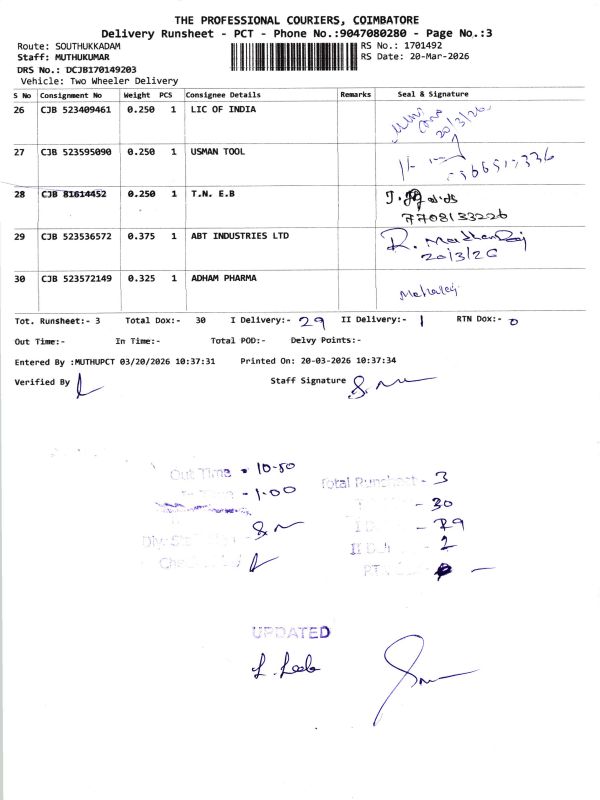 THE PROFESSIONAL COURIERS, COIMBATORE
Delivery Runsheet - PCT - Phone No.:9047080280 - Page No.:3
Route: SOUTHUKKADAM
RS No.: 1701492
Staff: MUTHUKUMAR
RS Date: 20-Mar-2026
DRS No.: DCJB170149203
Vehicle: Two Wheeler Delivery
S No Consignment No Weight PCS Consignee Details Remarks Seal & Signature
26 CJB 523409461 0.250 1 LIC OF INDIA
20/3/26
27 CJB 523595090 0.250 1 USMAN TOOL
28 CJB 81614452 0.250 1 T.N. E.B
7708133226
29 CJB 523536572 0.375 1 ABT INDUSTRIES LTD
20/3/26
30 CJB 523572149 0.325 1 ADHAM PHARMA
Tot. Runsheet:- 3 Total Dox:- 30 I Delivery:- 29 II Delivery:- 1 RTN Dox:- 0
Out Time:- In Time:- Total POD:- Delvy Points:-
Entered By :MUTHUPCT 03/20/2026 10:37:31 Printed On: 20-03-2026 10:37:34
Verified By Staff Signature
Out Time - 10-50
- 1-00
Total Runsheet - 3
- 30
- 29
UPDATED